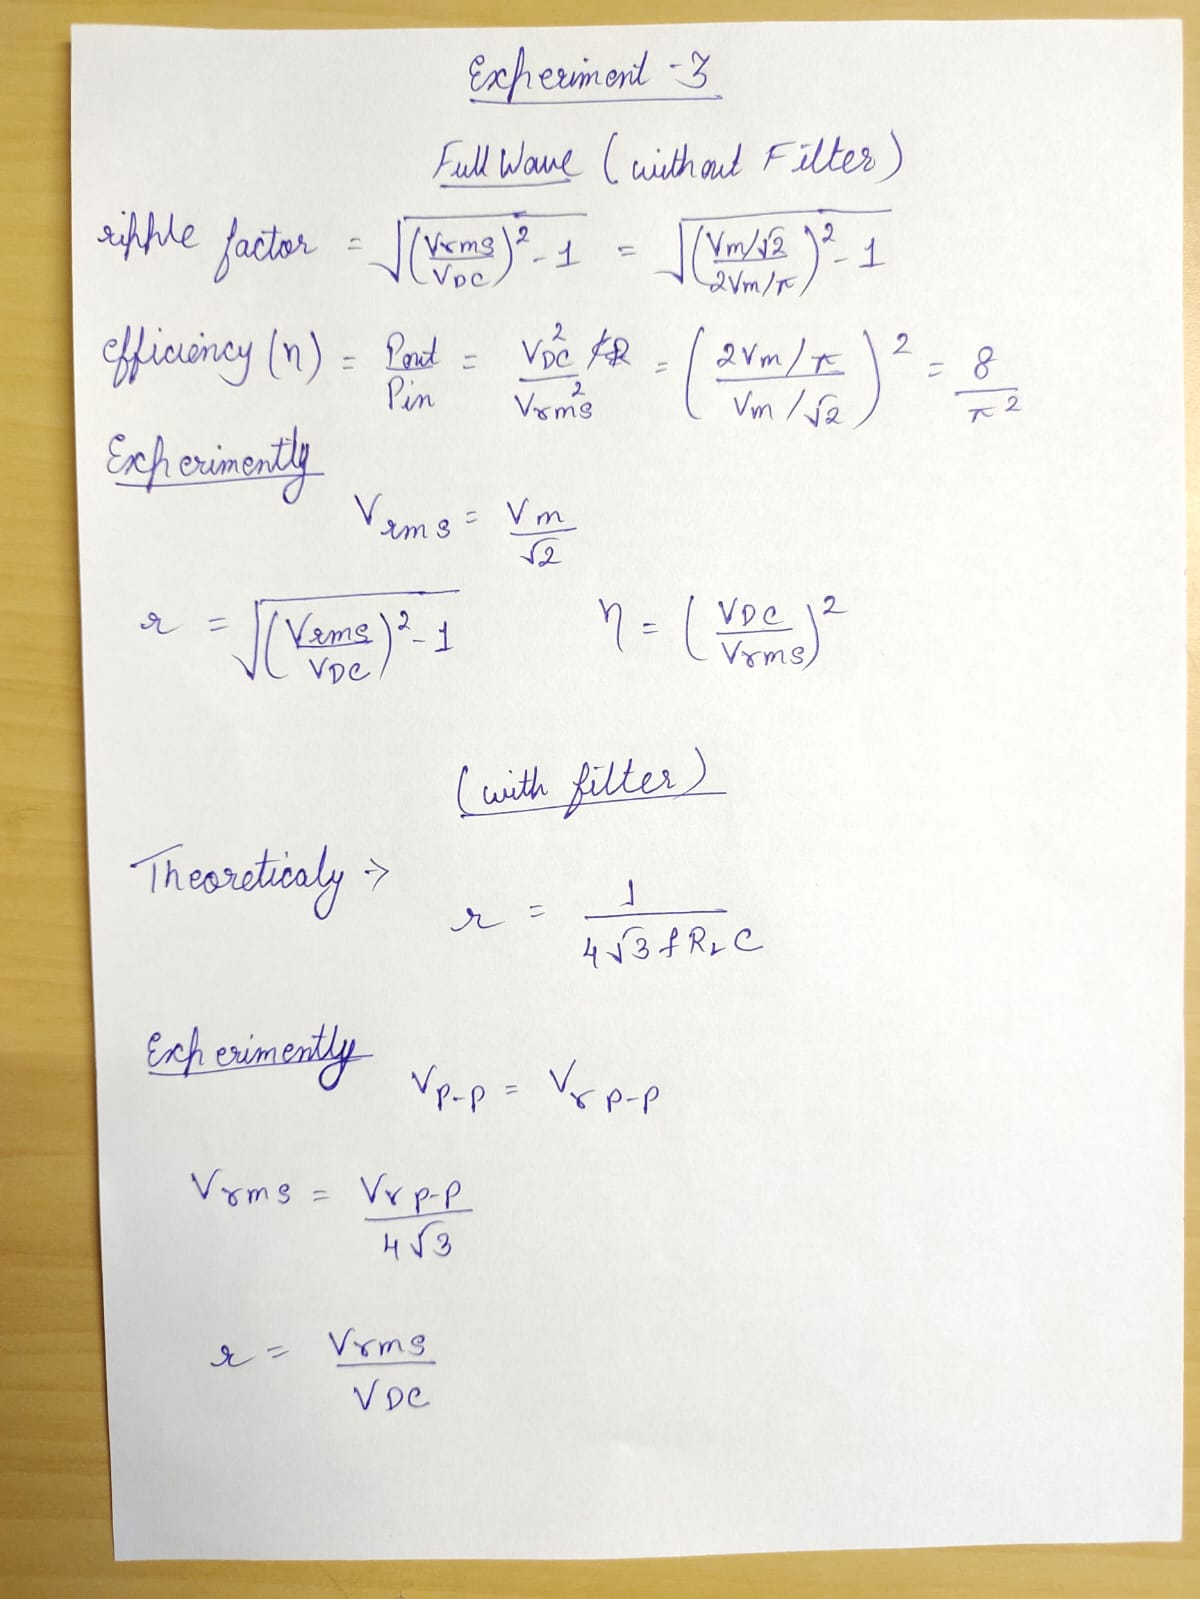 Experiment -3
Full Wave (without Filter)
ripple factor = √((Vrms/VDC)² - 1) = √((Vm/√2 / 2Vm/π)² - 1)
efficiency (η) = Pout/Pin = VDC²/Vrms² = (2Vm/π / Vm/√2)² = 8/π²
Experimently
Vrms = Vm/√2
r = √((Vrms/VDC)² - 1) η = (VDC/Vrms)²
(with filter)
Theoreticaly →
r = 1/4√3 f RL C
Experimently
Vp-p = Vr p-p
Vrms = Vr p-p/4√3
r = Vrms/VDC